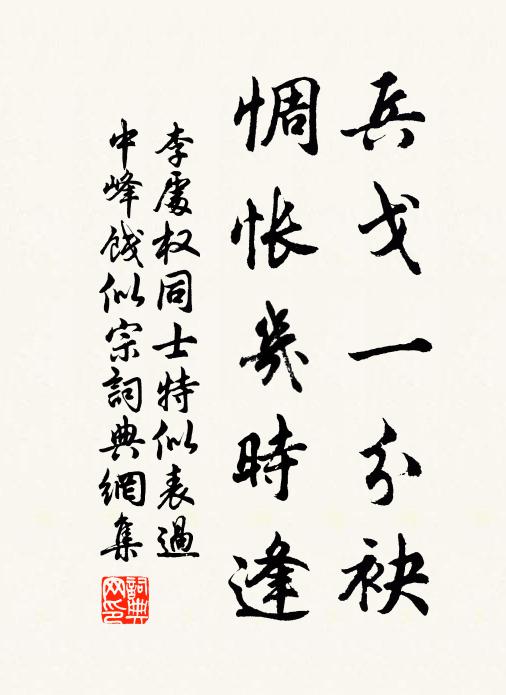 兵戈一分袂
惆悵幾時逢
李處權同士特似表過
中峰餞似宗詞典網集
詞典網印